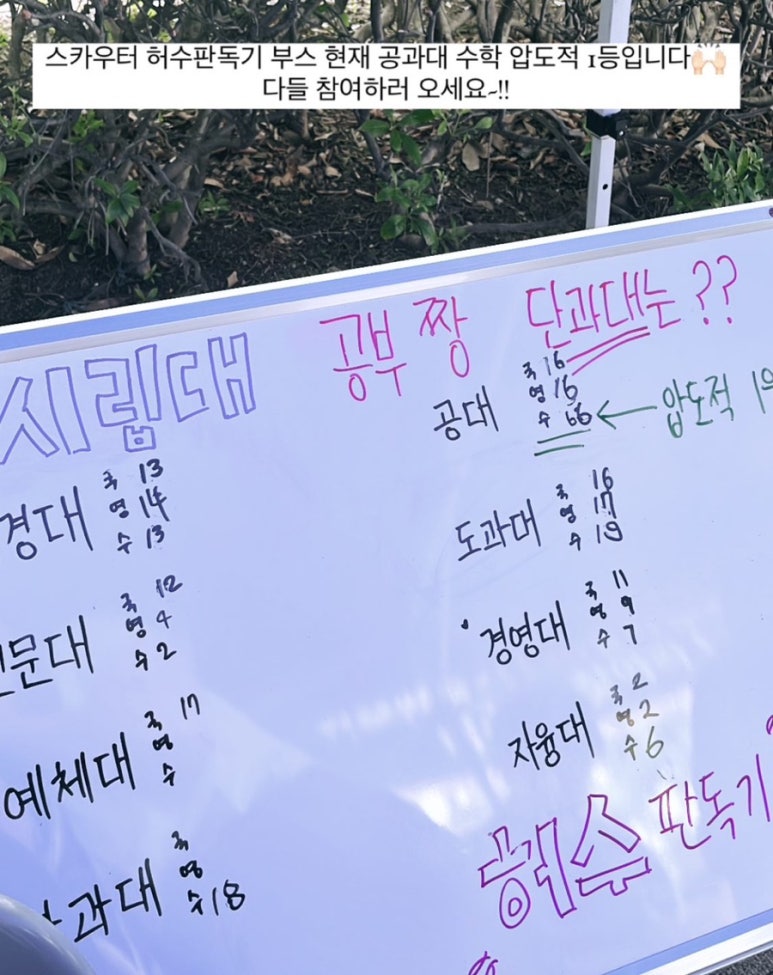 스카우터 허수판독기 부스 현재 공과대 수학 압도적 1등입니다🙌🏻
다들 참여하러 오세요~!!
시립대 공부 짱 단과대는 ??
경대
국 13
영 14
수 13
문대
국 12
영 4
수 2
예체대
국 17
영
수
과대
국
영
수 18
공대
국 16
영 16
수 66 ← 압도적 1위
도과대
국 16
영 17
수 19
경영대
국 11
영 9
수 7
자융대
국 2
영 2
수 6
허수 판독기